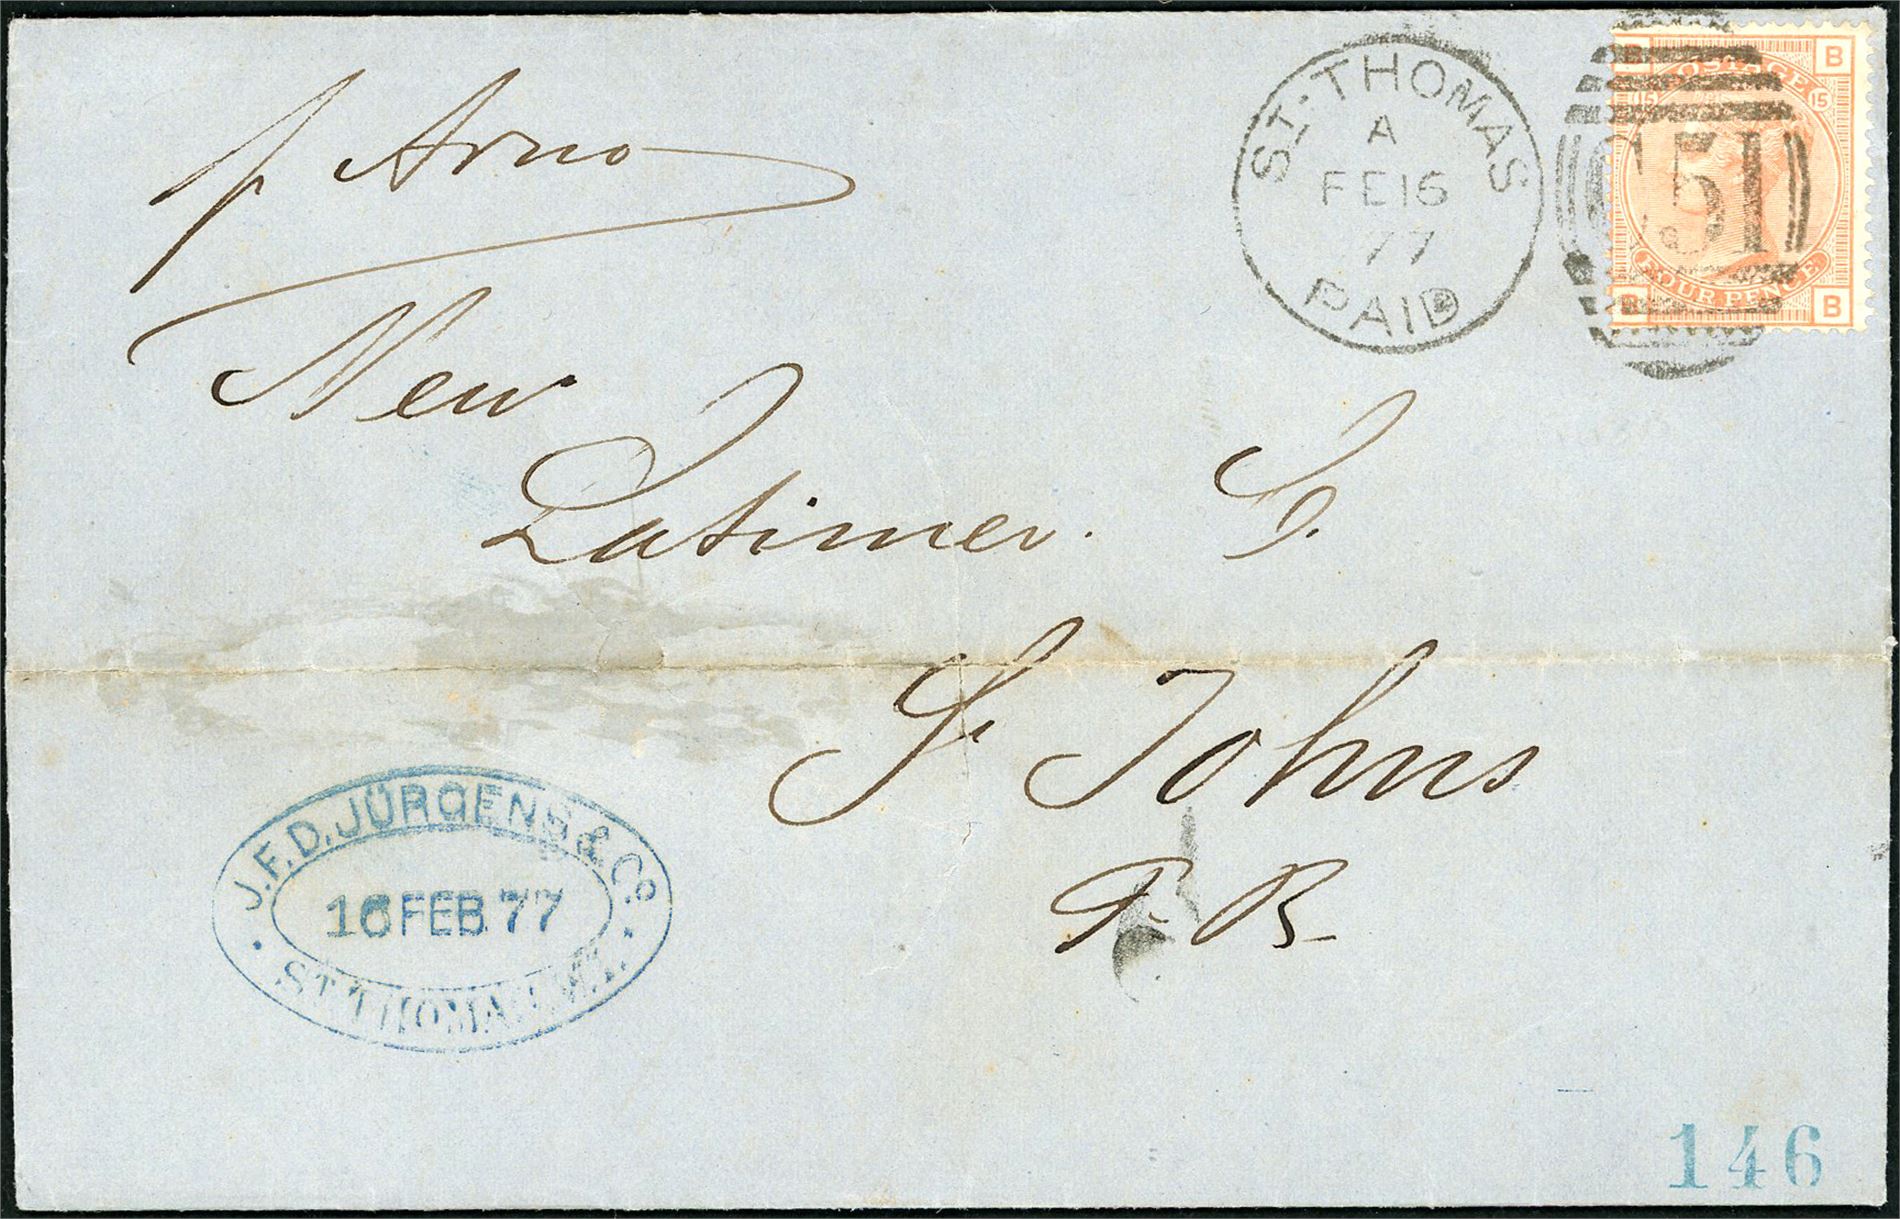 p Arno
New
Latimer. &
St Johns
P. R
ST. THOMAS
A
FE 16
77
PAID
C51
B B
POSTAGE
15 15
FOUR PENCE
B B
J.F.D. JÜRGENS & Co
16 FEB. 77
ST. THOMAS
146